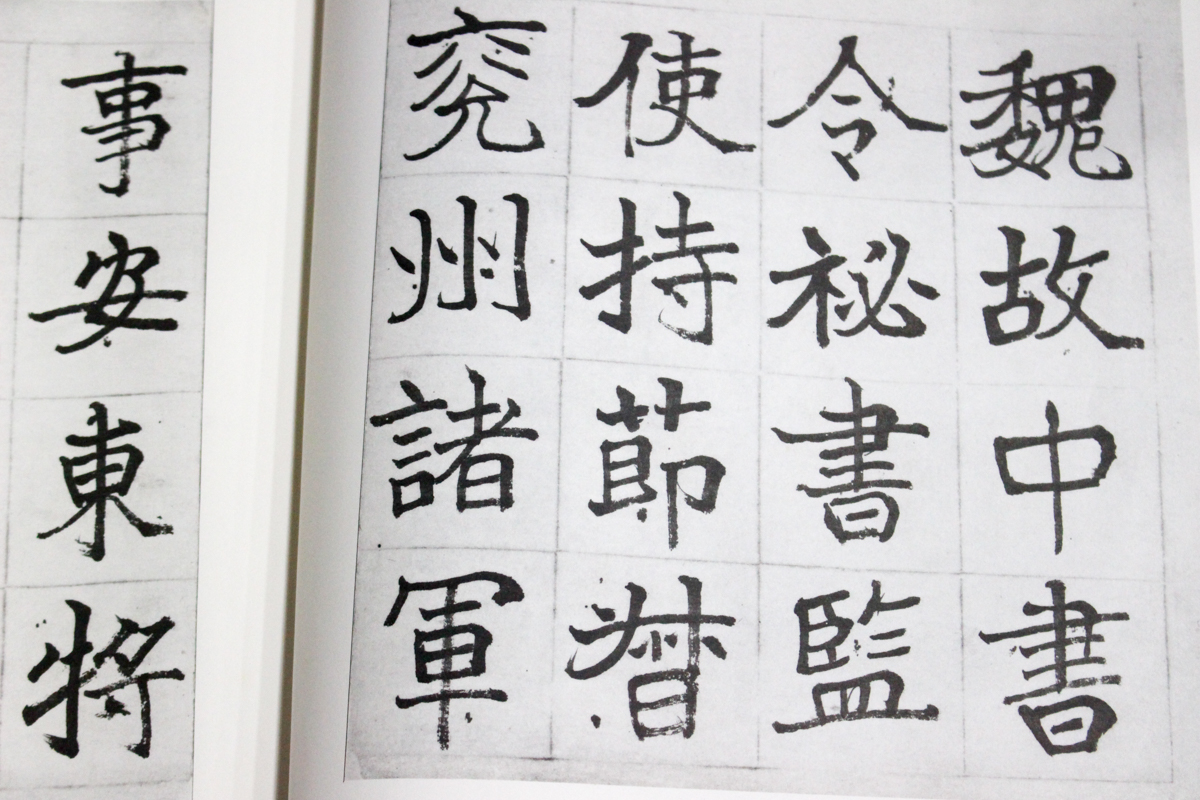 魏故中書
令祕書監
使持節督
兗州諸軍
事安東將